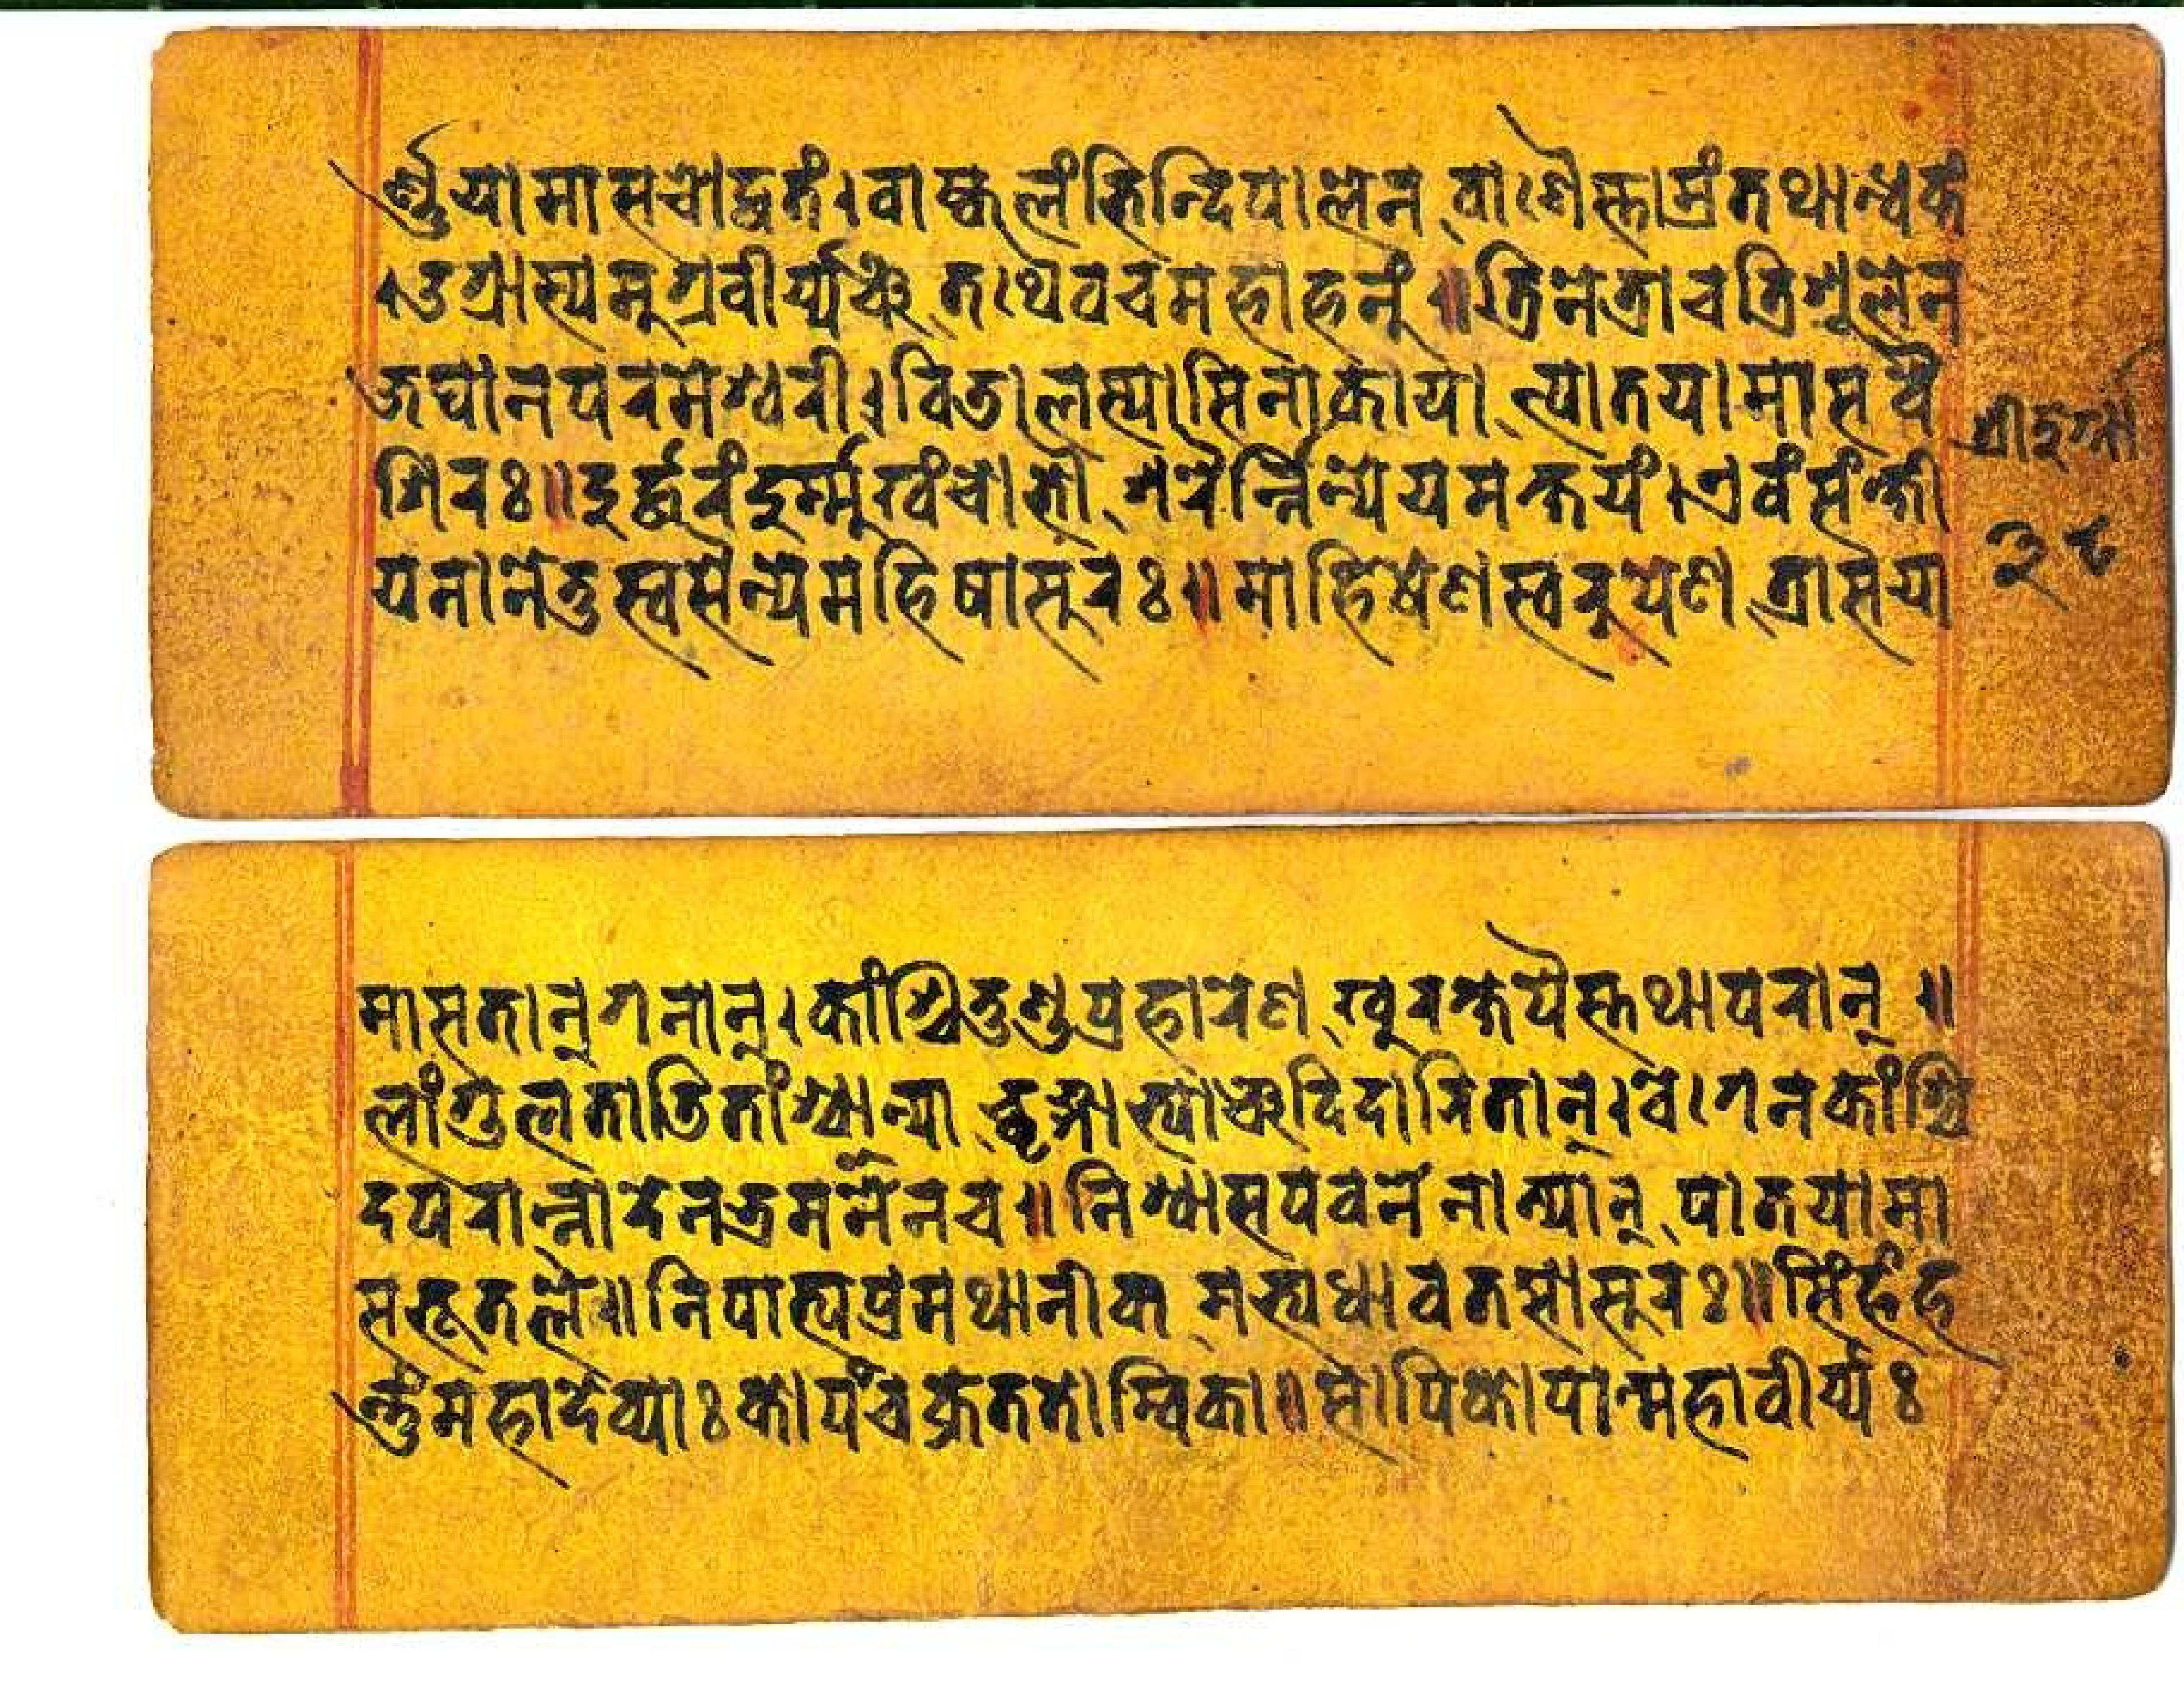 र्ण्णयामासचोद्धतं।वाष्कलंभिन्दिपालेन वाणैस्ताम्रंतथान्धकं
।उग्रास्यमुग्रवीर्य्यञ्च तथैवचमहाहनुं॥त्रिनेत्राचत्रिशूलेन
जघानपरमेश्वरी।विडालस्यासिनाकाया त्पातयामासवै
शिरः॥दुर्द्धरंदुर्म्मुखंचोभौ शरैर्न्निन्येयमक्षयं।एवंसंक्षी
यमानेतुस्वसैन्येमहिषासुरः॥माहिषेणस्वरूपेण त्रासया
श्रीदुर्गा
३८
मासतान्गनान्।कांश्चितुण्डप्रहारेण खुरक्षेपैस्तथापरान्॥
लांगुलताडितांश्चान्या छृङ्गाभ्याञ्चविदारितान्।वेगेनकांश्चि
दपरान्नादेनभ्रमनेनच॥निश्वासपवनेनान्यान् पातयामा
सभूतले॥निपात्यप्रमथानीक मभ्यधावतसोसुरः॥सिंहंह
न्तुंमहादेव्याः कोपंचक्रेततोम्विका॥सोपिकोपान्महावीर्य्यः